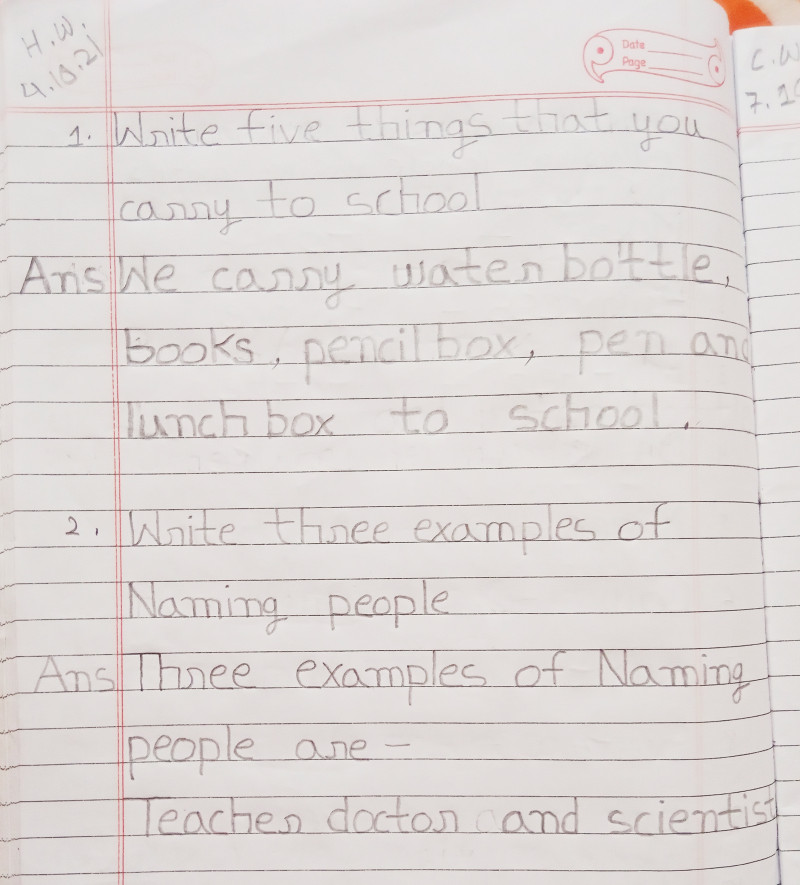 H.W.
4.10.21
Date
Page
C.W
7.10
1. Write five things that you
carry to school
Ans We carry water bottle,
books, pencil box, pen and
lunch box to school.
2. Write three examples of
Naming people
Ans Three examples of Naming
people are -
Teacher doctor and scientist